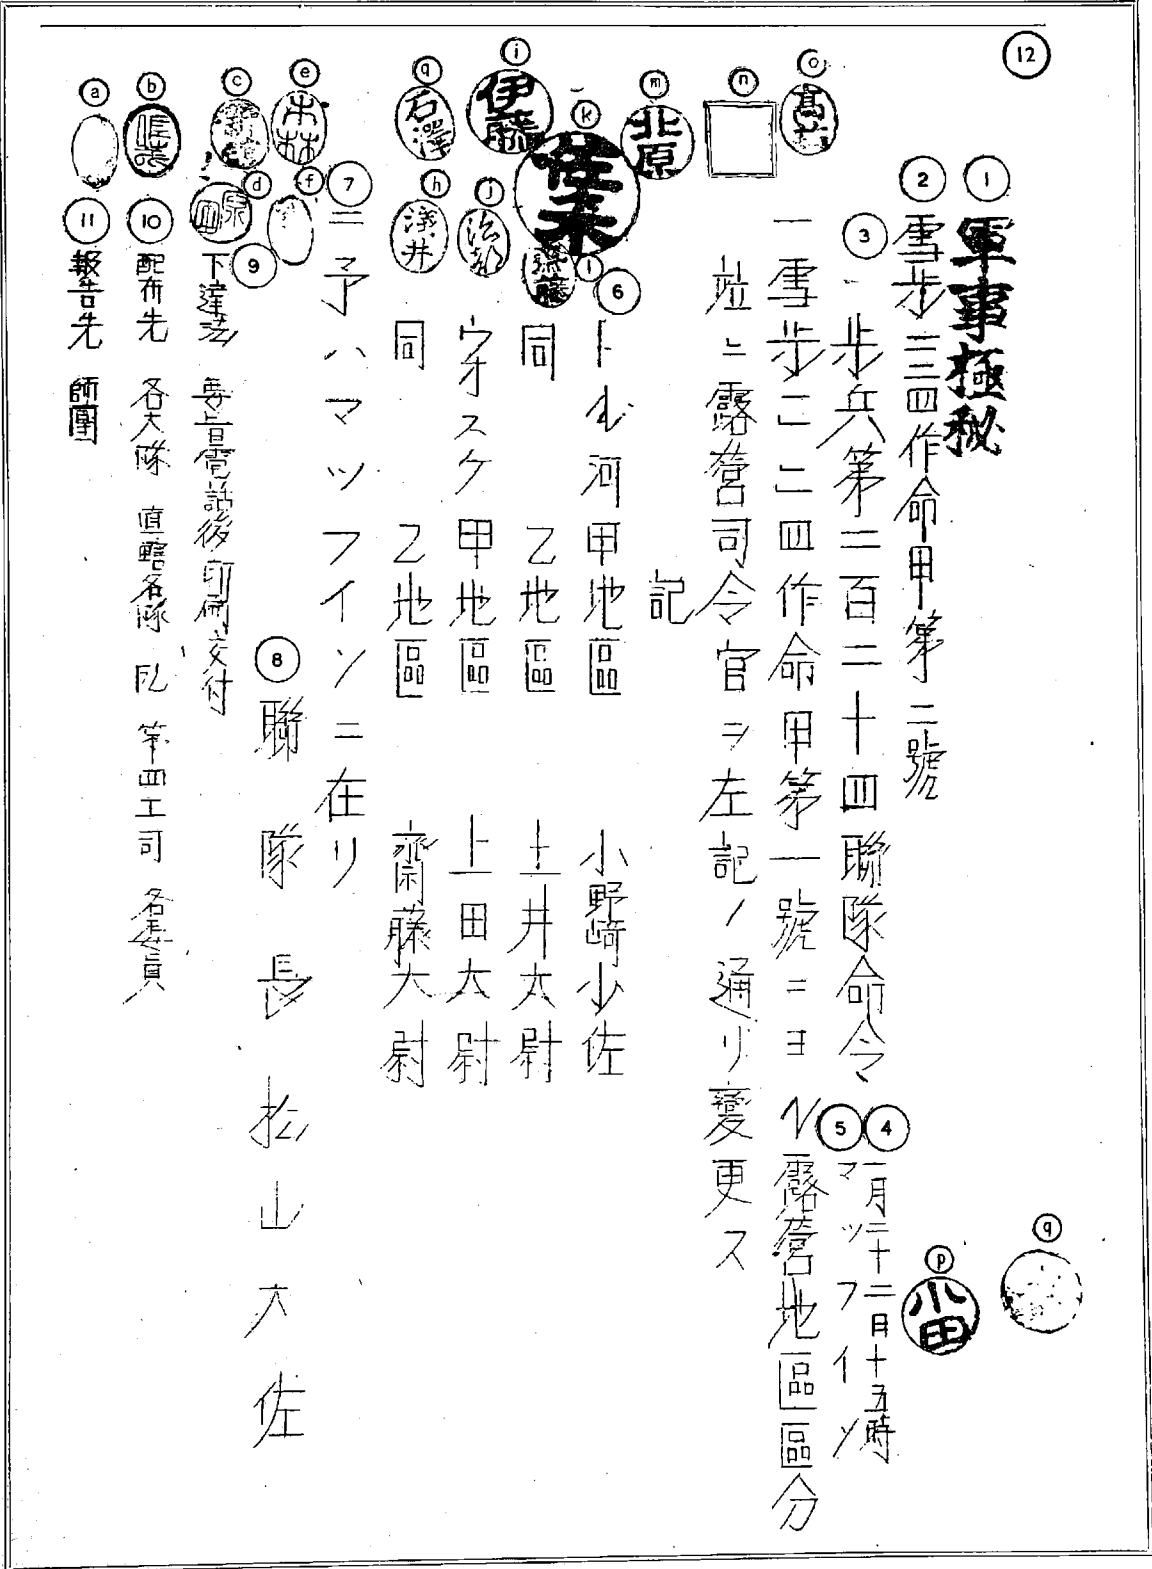 12
1
軍事極秘
2
雪歩二二四作命甲第二號
3
歩兵第二百二十四聯隊命令
4
一月二十二日十五時
5
マッフイソ
一雪歩二二四作命甲第一號ニヨル露營地區區分
竝ニ露營司令官ヲ左記ノ通リ變更ス
記
6
トル河甲地區 小野崎少佐
同 乙地區 土井大尉
ウオスケ甲地區 上田大尉
同 乙地區 齋藤大尉
7
二予ハマッフインニ在リ
8
聯隊長松山大佐
9
下達法 要旨電話後印刷交付
10
配布先 各大隊 直轄各隊 第四工司 各委員
11
報告先 師團
a
b
c
d
e
f
q
石澤
h
淺井
i
伊藤
j
k
佐木
l
齋藤
m
北原
n
o
p
小田
q